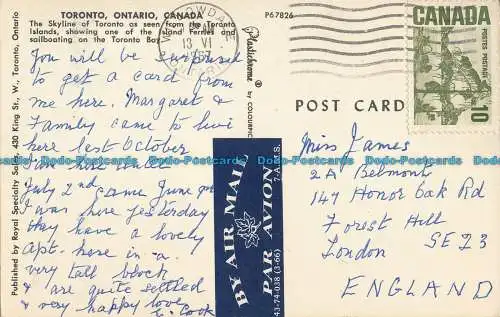 TORONTO, ONTARIO, CANADA
The Skyline of Toronto as seen from the Toronto
Islands, showing one of the Island Ferries and
sailboating on the Toronto Bay.
P67826
You will be surprised
to get a card from
me here. Margaret &
Family came to live
here last October
am here until
July 2nd came June 9th
I was here yesterday
they have a lovely
Apt. here in a
very tall block
& are quite settled
& very happy love
E. Cook
Published by Royal Specialty Sales, 430 King St., W., Toronto, Ontario
Plastichrome ®
by COLOURPIC
13 VI
1967
CANADA
POSTES POSTAGE
10
POST CARD
BY AIR MAIL
PAR AVION
43-74-038 (3-66) 7-A.M.S.
Miss James
2A Belmont
147 Honor Oak Rd
Forest Hill
London SE23
ENGLAND
Dodo-Postcards Dodo-Postcards Dodo-Postcards Dodo-Postcards